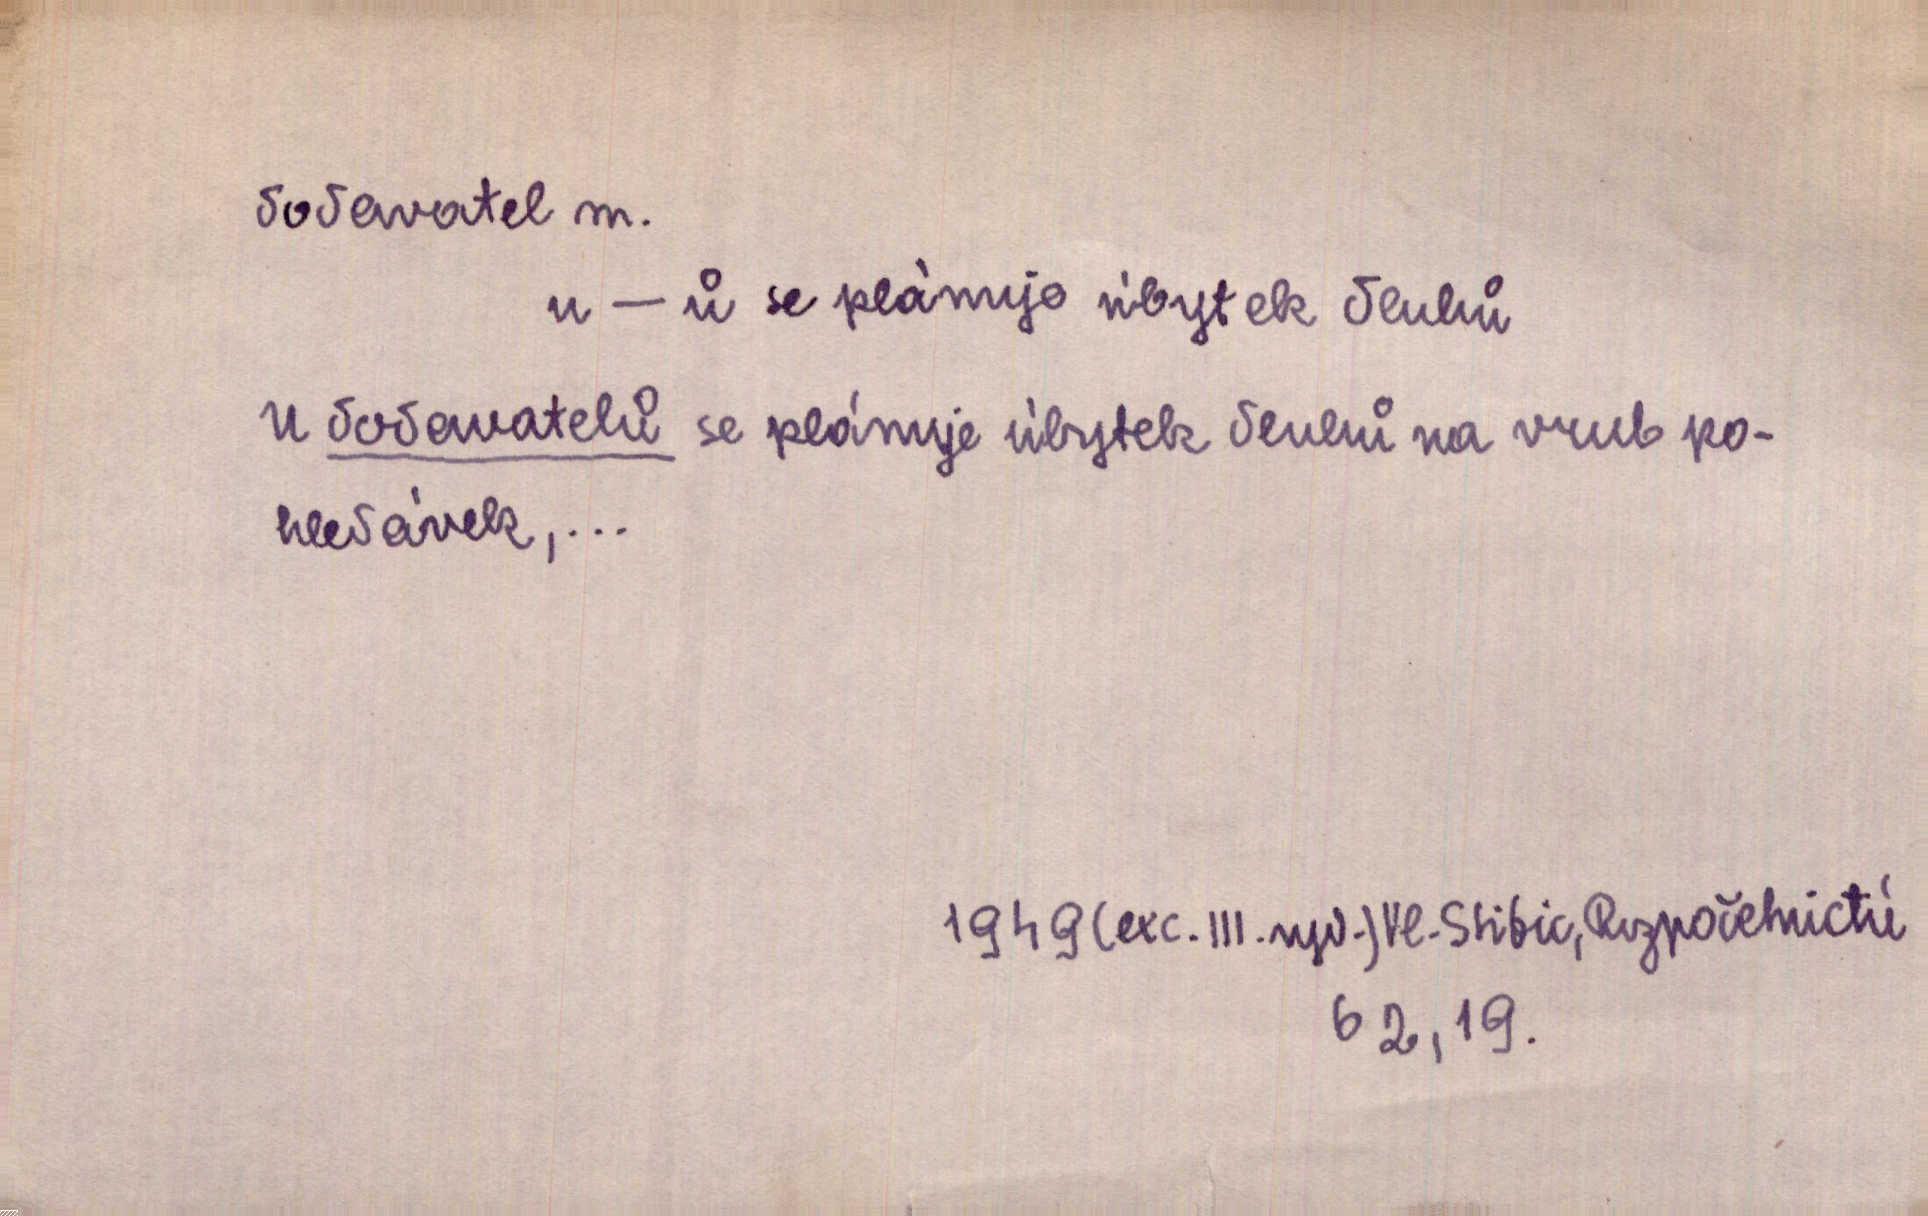 dodavatel m.
u – ů se plánuje úbytek dluhů
U dodavatelů se plánuje úbytek dluhů na vrub po-
hledávek, ...
1949 (exc. III. vyd.) Vl. Stibic, Rozpočetnictví
62, 19.